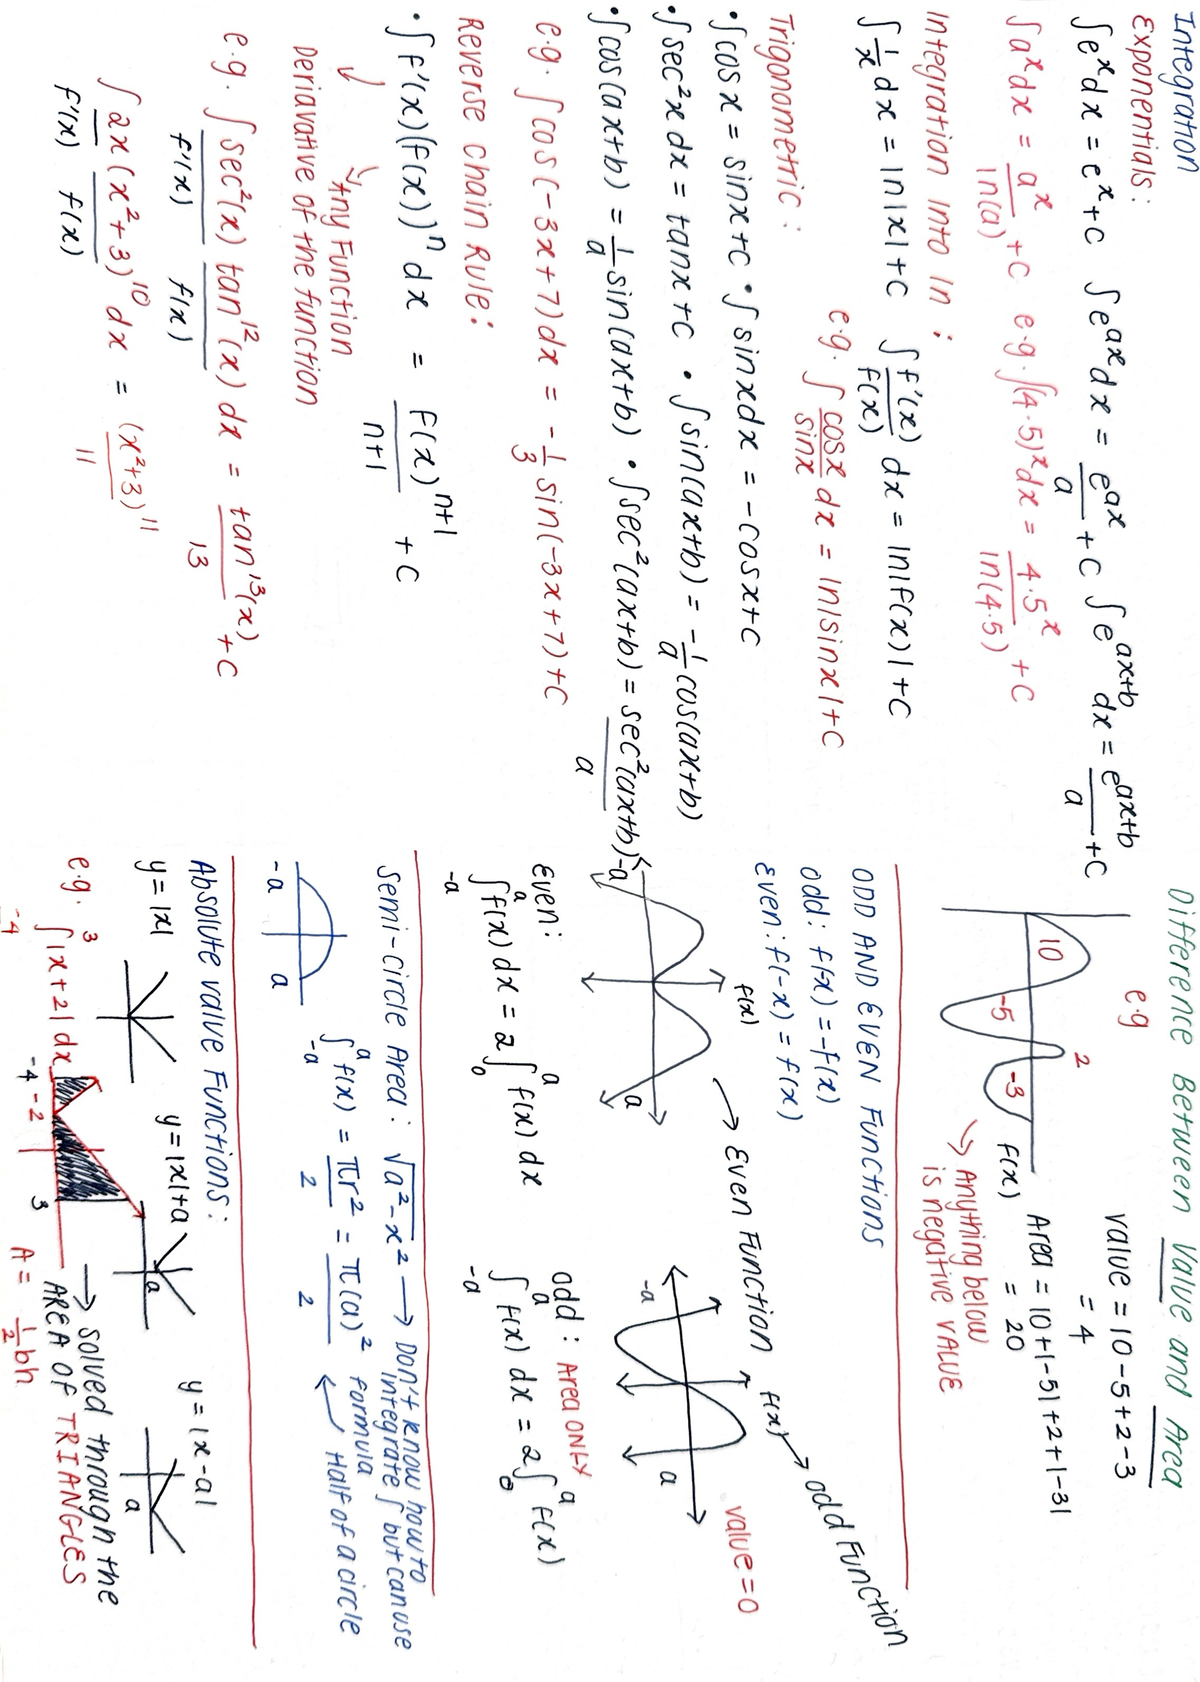 Integration
Exponentials:
∫e^x dx = e^x + c   ∫e^ax dx = e^ax/a + c   ∫e^(ax+b) dx = e^(ax+b)/a + c
∫a^x dx = a^x/ln(a) + c   e.g. ∫(4.5)^x dx = 4.5^x/ln(4.5) + c
Integration into ln:
∫1/x dx = ln|x| + c   ∫f'(x)/f(x) dx = ln|f(x)| + c
e.g. ∫cosx/sinx dx = ln|sinx| + c
Trigonometric:
• ∫cosx = sinx + c • ∫sinx dx = -cosx + c
• ∫sec²x dx = tanx + c • ∫sin(ax+b) = -1/a cos(ax+b)
• ∫cos(ax+b) = 1/a sin(ax+b) • ∫sec²(ax+b) = sec²(ax+b)/a
e.g. ∫cos(-3x+7)dx = -1/3 sin(-3x+7) + c
Reverse chain Rule:
• ∫f'(x)(f(x))^n dx = f(x)^(n+1)/n+1 + c
Any Function
Deriavative of the function
e.g. ∫sec²(x) tan^12(x) dx = tan^13(x)/13 + c
f'(x) f(x)
∫2x(x²+3)^10 dx = (x²+3)^11/11
f'(x) f(x)
Difference Between Value and Area
e.g
10
-5
2
-3
f(x)
value = 10 - 5 + 2 - 3
= 4
Area = 10 + |-5| + 2 + |-3|
= 20
→ Anything below
is negative VALUE
ODD AND EVEN Functions
odd: f(-x) = -f(x)
Even: f(-x) = f(x)
→ Even Function
f(x)
-a
a
f(x)
→ odd Function
value = 0
-a
a
Even:
∫_-a^a f(x) dx = 2∫_0^a f(x) dx
odd: Area ONLY
∫_-a^a f(x) dx = 2∫_0^a f(x)
Semi-circle Area: √a²-x² → Don't know how to
integrate ∫ but can use
formula
-a
a
∫_-a^a f(x) = πr²/2 = π(a)²/2
← Half of a circle
Absolute value Functions:
y = |x|
y = |x| + a
a
y = |x - a|
a
e.g. ∫_-4^3 |x+2| dx
-4 -2
3
→ Solved through the
AREA OF TRIANGLES
A = 1/2 bh